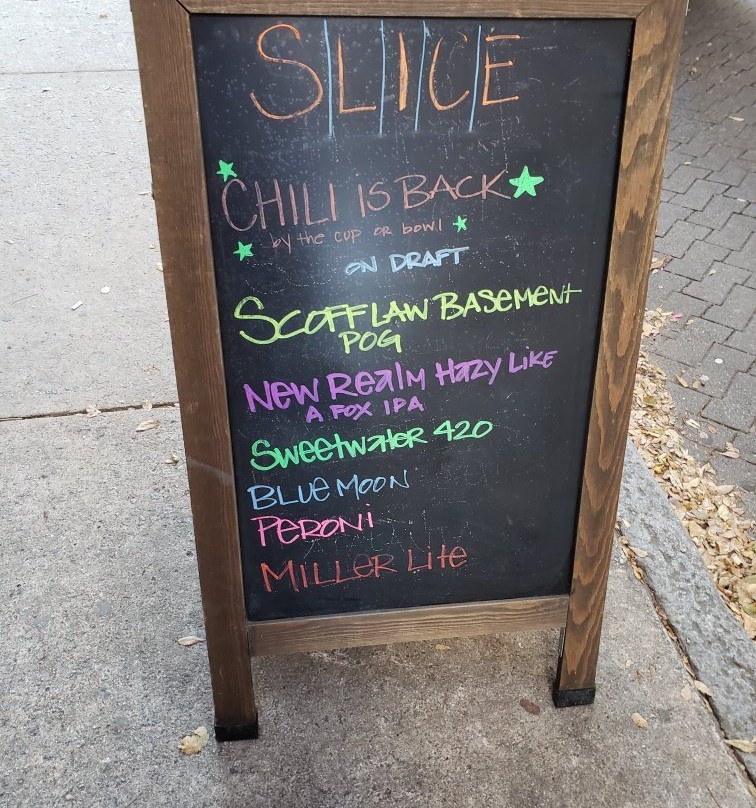 SLICE
CHILI IS BACK
by the cup or bowl
ON DRAFT
SCOFFLAW BASEMENT
POG
NEW REALM HAZY LIKE
A FOX IPA
SWEETWATER 420
BLUE MOON
PERONI
MILLER LITE